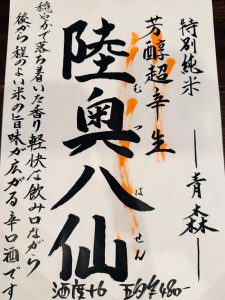 特別純米
青森
芳醇超辛生
陸奥八仙
むつ
はっせん
穏やかで落ち着いた香り軽快な飲み口ながら
後から程のよい米の旨味が広がる辛口酒です
酒度+6
五勺 480-